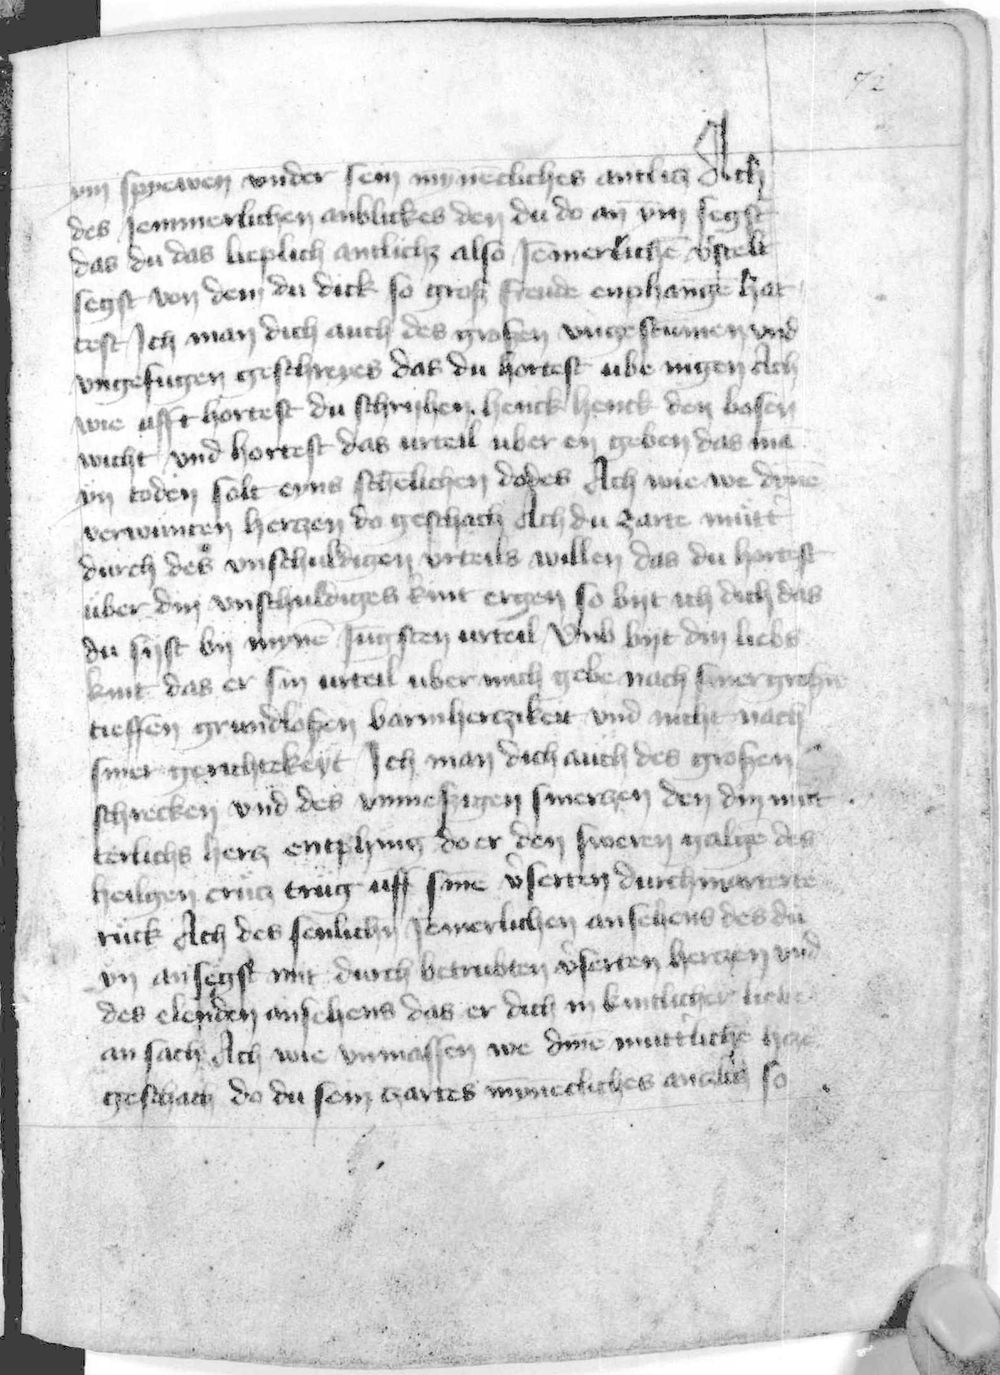 72
yn spyewen vnder sein mynecliches antlicz Ach
des Jemmerlichen anblickes den du do an ym segst
das du das lieplich antlicz also Jemerlichē v̓stelt
segst von dem du dick so groß freude enphangē hat
test Ich man dich auch des großen vngestumen vnd
vngefugen geschreyes das du hortest ube ingen Ach
wie ufft hortest du schryben henck henck den bosen
wicht vnd hortest das urteil uber en geben das ma
yn toden solt eyns schēlichen dodes Ach wie we dynē
verwunten hertzen do geschach Ach du zarte mutt̓
durch des vnschuldigen vrteils willen das du hortest
uber din vnschuldiges kint ergen so biit ich dich das
du siist by mynē Jungsten urteil Vnd biit din liebs
kint das er sin urteil uber mich gebe nach siner großn
tieffen grundloßen barmherczikeit vnd nicht nach
siner gerichtekeyt Ich man dich auch des großen
schrecken vnd des vnmeßigen smerczen den din mut
terlichs hercz entphing do er den sweren galgē des
heilgen crucz trug uff sinē v̓serten durchmarterte
ruck Ach des senlichn Jemerlichen ansehens des du
yn ansegst mit durch betrubten v̓serten herczen vnd
des elenden ansehens das er dich in kintlicher liebe
an sach Ach wie vnmassen we dinē mutt̓lichē hcze
geschach do du sein zartes mynecliches anczlicz so